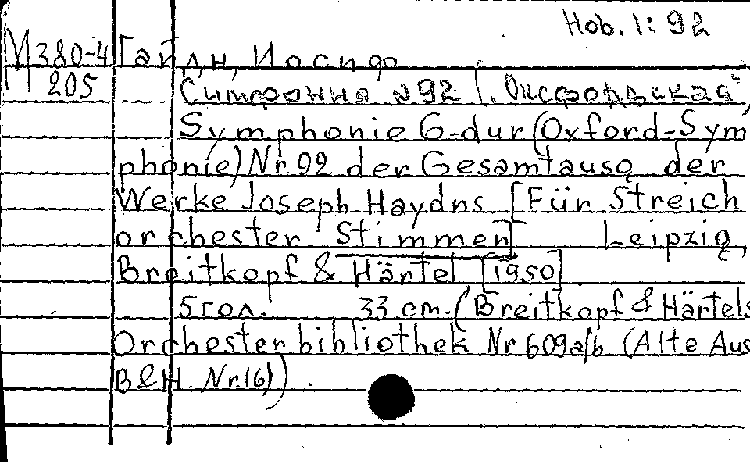 Hob. 1:92
М380-4 Гайдн, Иосиф
205 Симфония №92 /„Оксфордская"/
Symphonie G-dur (Oxford-Sym
phonie) Nr.92 der Gesamtausg. der
Werke Joseph Haydns [Für Streich
orchester Stimmen] Leipzig,
Breitkopf & Härtel [1950]
5 гол. 33 cm. (Breitkopf & Härtels
Orchesterbibliothek Nr 609a/b (Alte Aus
B&H Nr.16)).